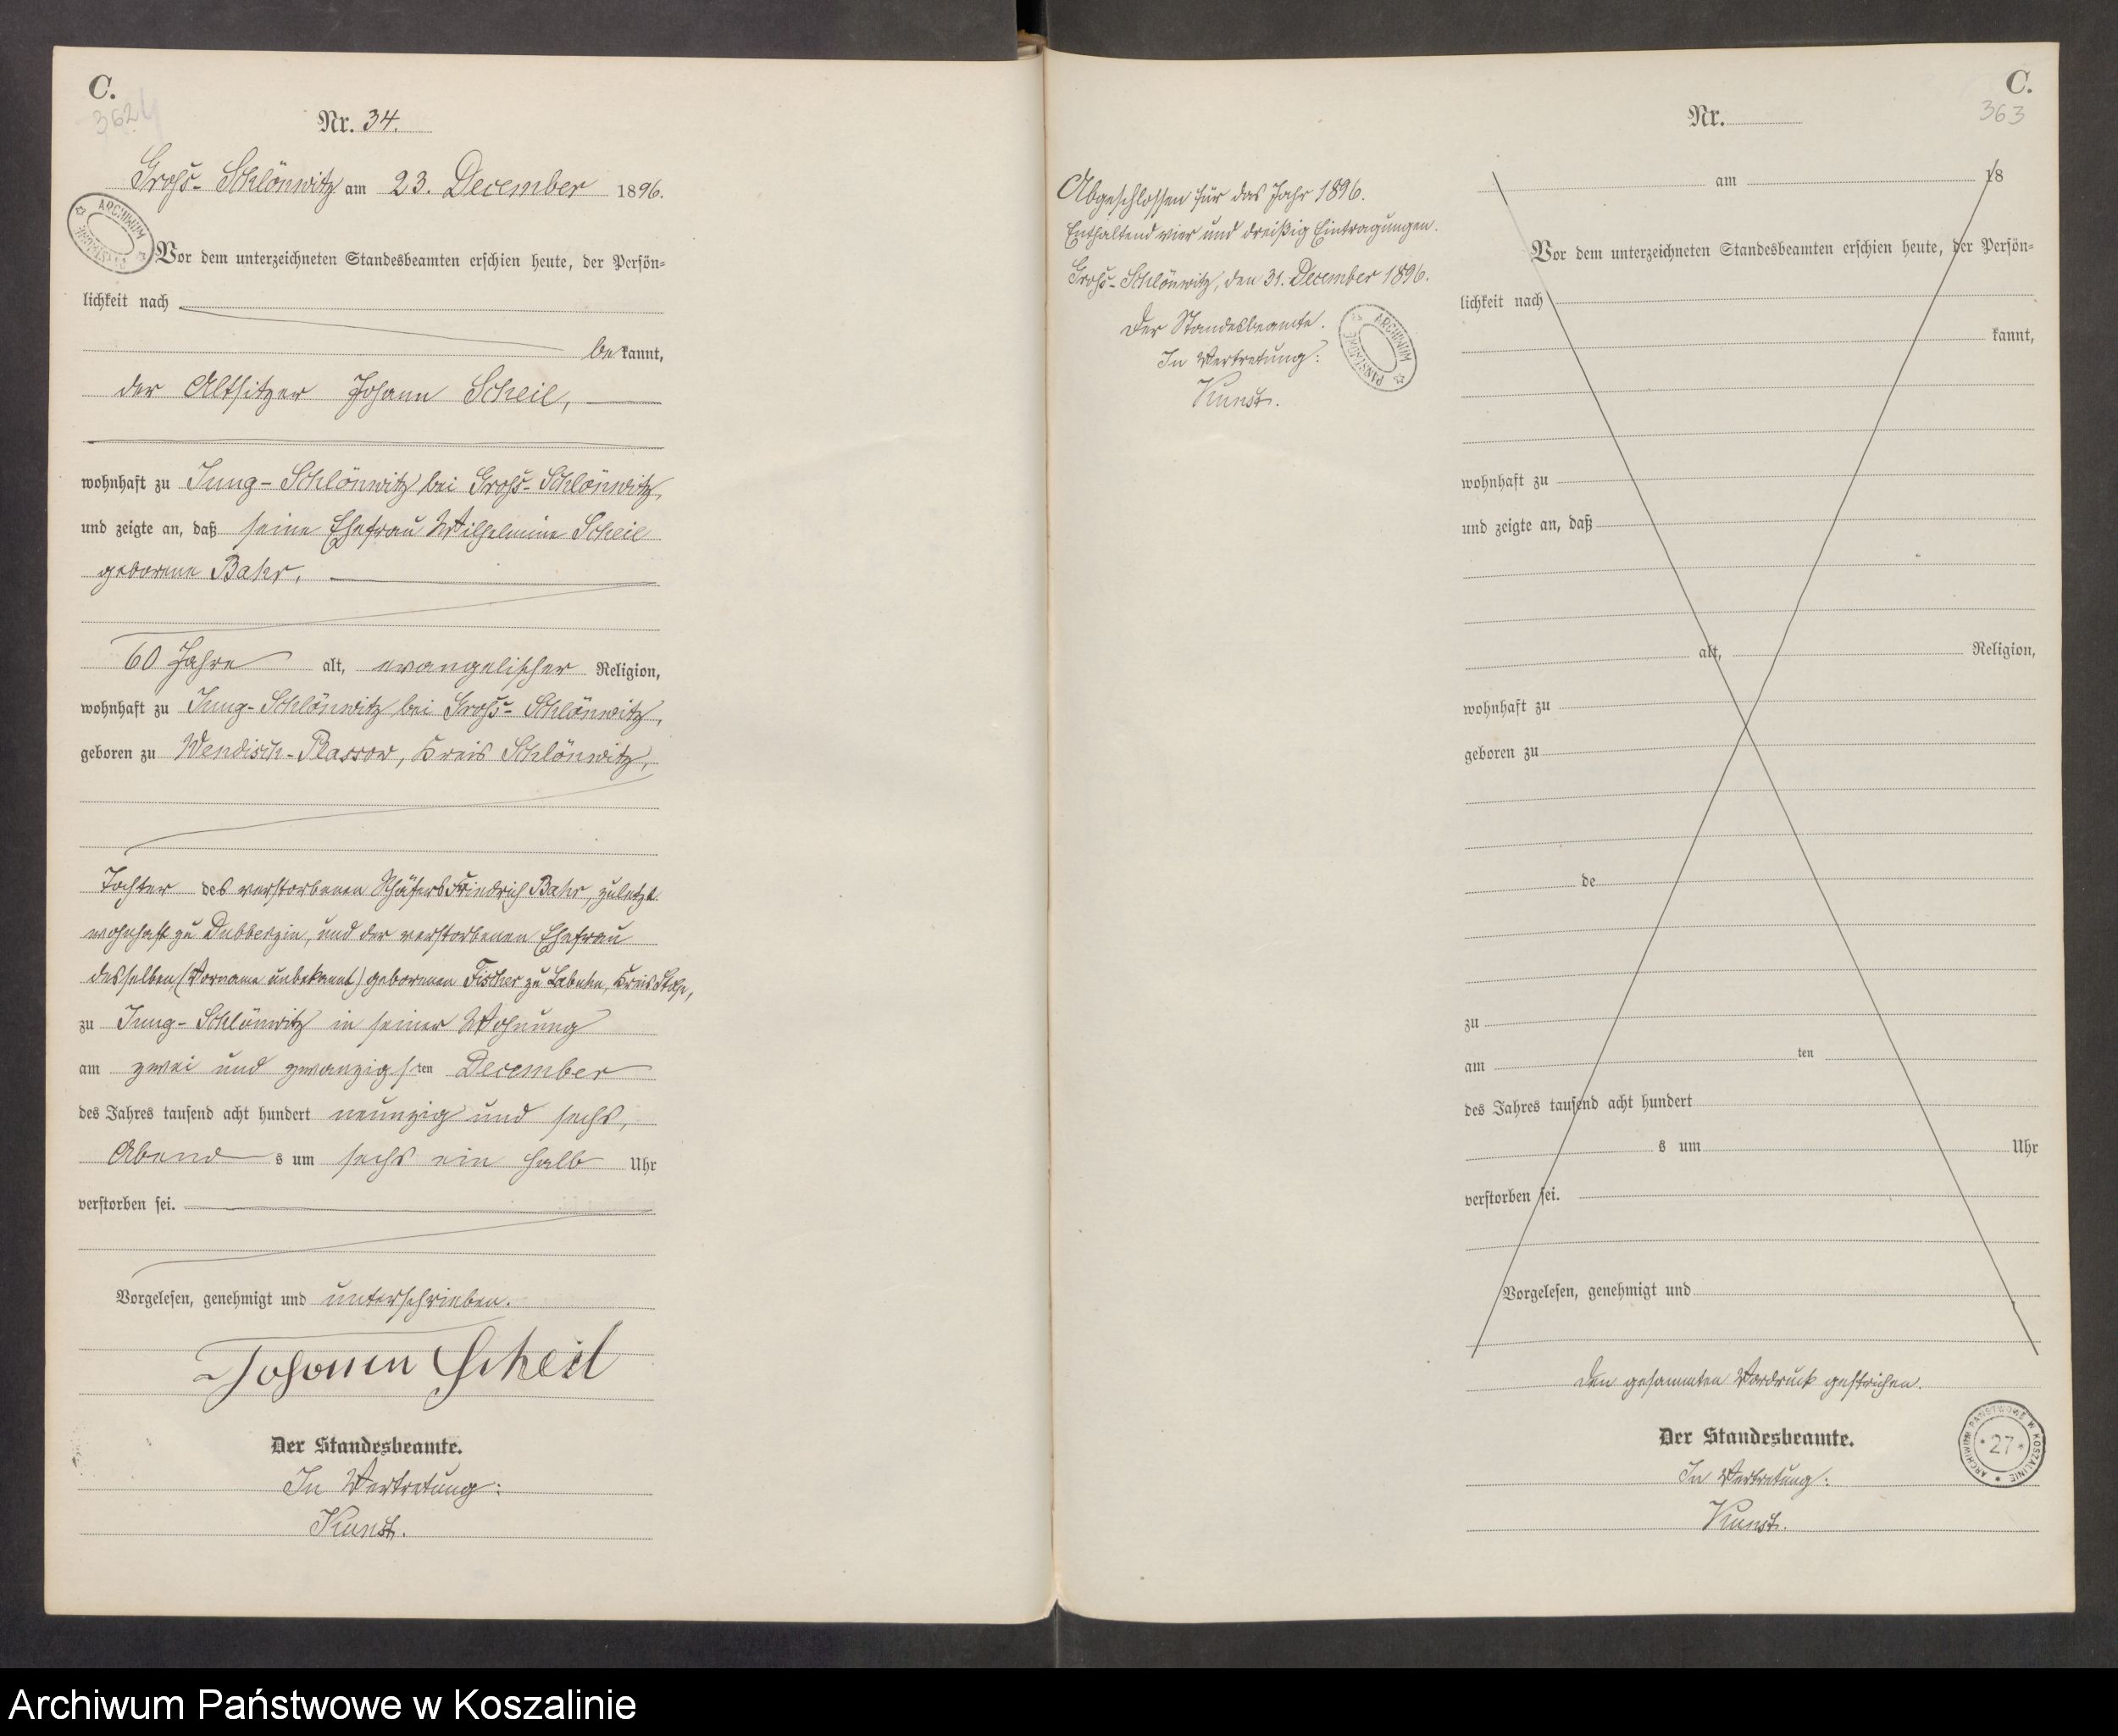 C.
362
Nr. 34.
Groß-Schlönwitz am 23. December 1896.
Vor dem unterzeichneten Standesbeamten erschien heute, der Persön-
lichkeit nach
bekannt,
der Altsitzer Johann Scheil,
wohnhaft zu Jung-Schlönwitz bei Groß-Schlönwitz,
und zeigte an, daß seine Ehefrau Wilhelmine Scheil
geborene Bahr,
60 Jahre alt, evangelischer Religion,
wohnhaft zu Jung-Schlönwitz bei Groß-Schlönwitz,
geboren zu Wendisch-Plassow, Kreis Schlönwitz,
Tochter des verstorbenen Schäfers Friedrich Bahr, zuletzt
wohnhaft zu Dubberzin, und der verstorbenen Ehefrau
desselben, (Vorname unbekannt) geborenen Fischer zu Labuhn, Kreis Stolp,
zu Jung-Schlönwitz in seiner Wohnung
am zwei und zwanzigsten December
des Jahres tausend acht hundert neunzig und sechs,
Abends um sechs ein halb Uhr
verstorben sei.
Vorgelesen, genehmigt und unterschrieben.
Johann Scheil
Der Standesbeamte.
In Vertretung:
Kunst.
Abgeschlossen für das Jahr 1896.
Enthaltend vier und dreißig Eintragungen.
Groß-Schlönwitz, den 31. December 1896.
Der Standesbeamte.
In Vertretung:
Kunst.
C.
363
Nr.
am 18
Vor dem unterzeichneten Standesbeamten erschien heute, der Persön-
lichkeit nach
kannt,
wohnhaft zu
und zeigte an, daß
alt, Religion,
wohnhaft zu
geboren zu
de
zu
am ten
des Jahres tausend acht hundert
s um Uhr
verstorben sei.
Vorgelesen, genehmigt und
Den gesammten Vordruck gestrichen.
Der Standesbeamte.
In Vertretung:
Kunst.
ARCHIWUM PAŃSTWOWE W KOSZALINIE
27
Archiwum Państwowe w Koszalinie